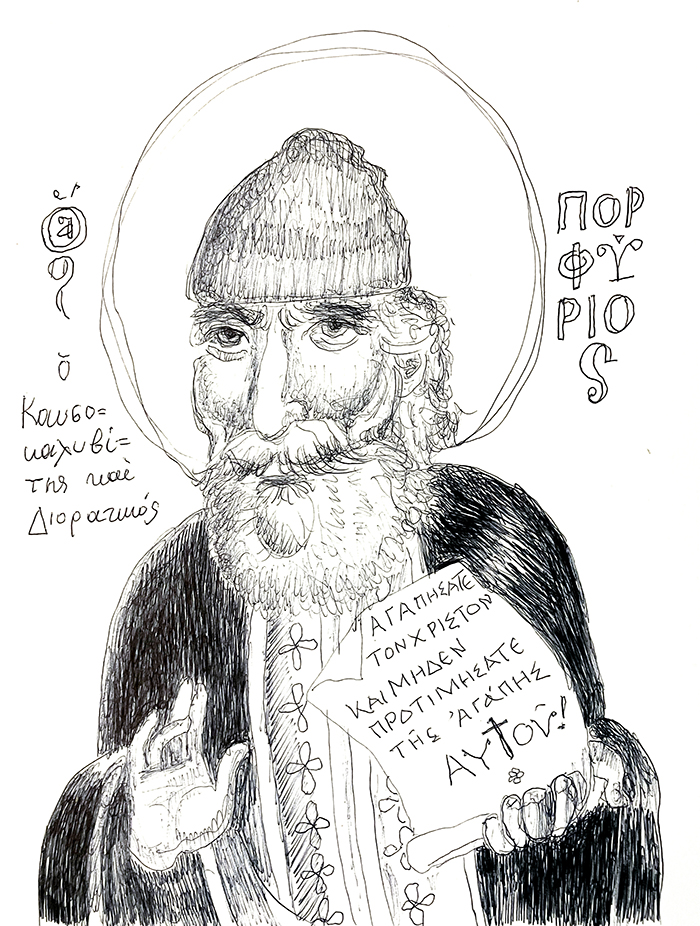 ὁ ἅγιος
ὁ
Καυσο=
καλυβί=
της καὶ
Διορατικός
ΠΟΡ
ΦΎ
ΡΙΟ
ς
ΑΓΑΠΗΣΑΤΕ
ΤΟΝ ΧΡΙΣΤΟΝ
ΚΑΙ ΜΗΔΕΝ
ΠΡΟΤΙΜΗΣΑΤΕ
ΤΗ͂Σ ἈΓΆΠΗΣ
ΑΥΤΟΥ͂!